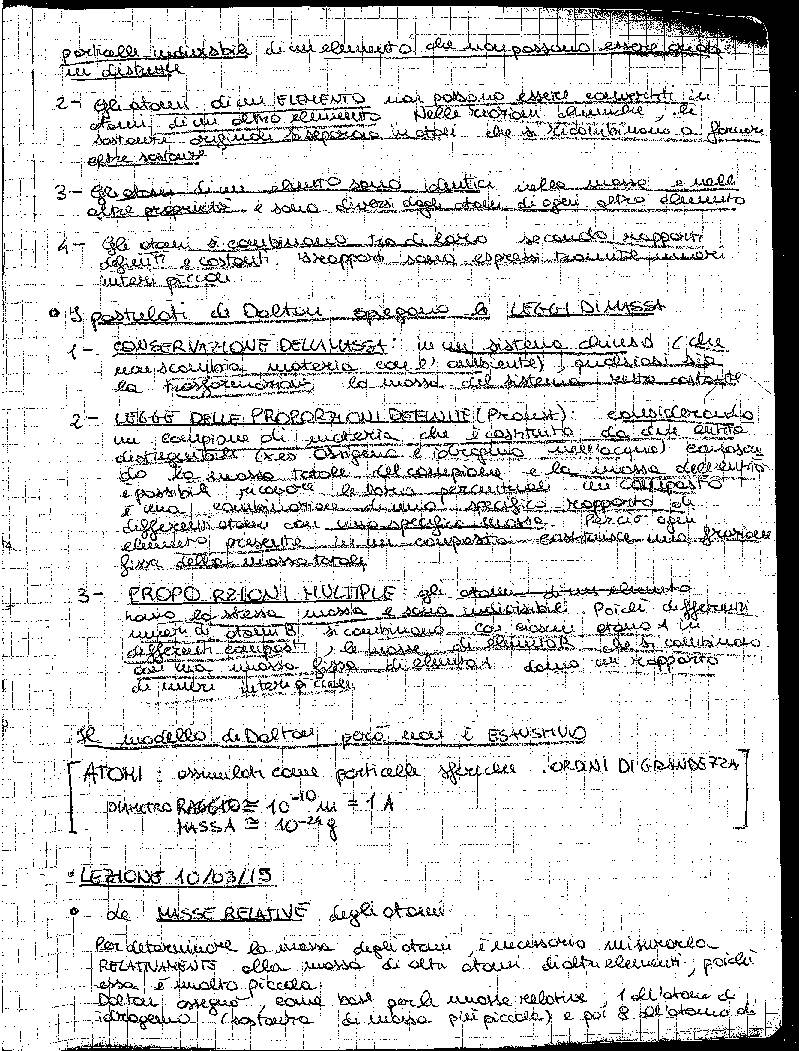 particelle indivisibili di un elemento che non possono essere create
in distrutte
2- Gli atomi di un ELEMENTO non possono essere convertiti in
atomi di un altro elemento. Nelle reazioni chimiche, le
sostanze originali si separano in atomi che si ricombinano a formare
altre sostanze
3- Gli atomi di un elemento sono identici nella massa e nelle
altre proprietà e sono diversi dagli atomi di ogni altro elemento
4- Gli atomi si combinano tra di loro secondo rapporti
definiti e costanti I rapporti sono espressi tramite numeri
interi piccoli
• I postulati di Dalton spiegano le LEGGI DI MASSA
1- CONSERVAZIONE DELLA MASSA: in un sistema chiuso (che
non scambia materia con l'ambiente), qualsiasi sia
la trasformazione la massa del sistema resta costante
2- LEGGE DELLE PROPORZIONI DEFINITE (Proust): considerando
un campione di materia che è costituito da due entità
distinguibili (es Ossigeno e idrogeno nell'acqua) conoscen
do la massa totale del campione e la massa dell'entità
è possibile ricavare le loro percentuali un composto
è una combinazione di uno specifico rapporto di
differenti atomi con una specifica massa. Perciò ogni
elemento presente in un composto costituisce una frazione
fissa della massa totale
3- PROPORZIONI MULTIPLE gli atomi di un elemento
hanno la stessa massa e sono indivisibili. Poiché differenti
numeri di atomi B si combinano con ciascun atomo A in
differenti composti, le masse di elemento B che si combinano
con una massa fissa di elemento A danno un rapporto
di numeri interi piccoli
Il modello di Dalton però non è ESAUSTIVO
[ATOMI: assimilati come particelle sferiche. ORDINI DI GRANDEZZA
DIAMETRO RAGGIO ≅ 10⁻¹⁰ m = 1 A
MASSA ≅ 10⁻²⁴ g ]
• LEZIONE 10/03/15
• le MASSE RELATIVE degli atomi
Per determinare la massa degli atomi, è necessario misurarla
RELATIVAMENTE alla massa di altri atomi di altri elementi, poiché
essa è molto piccola.
Dalton assegnò, come base per la masse relative, 1 all'atomo di
idrogeno (sostanza di massa più piccola) e poi 8 all'atomo di